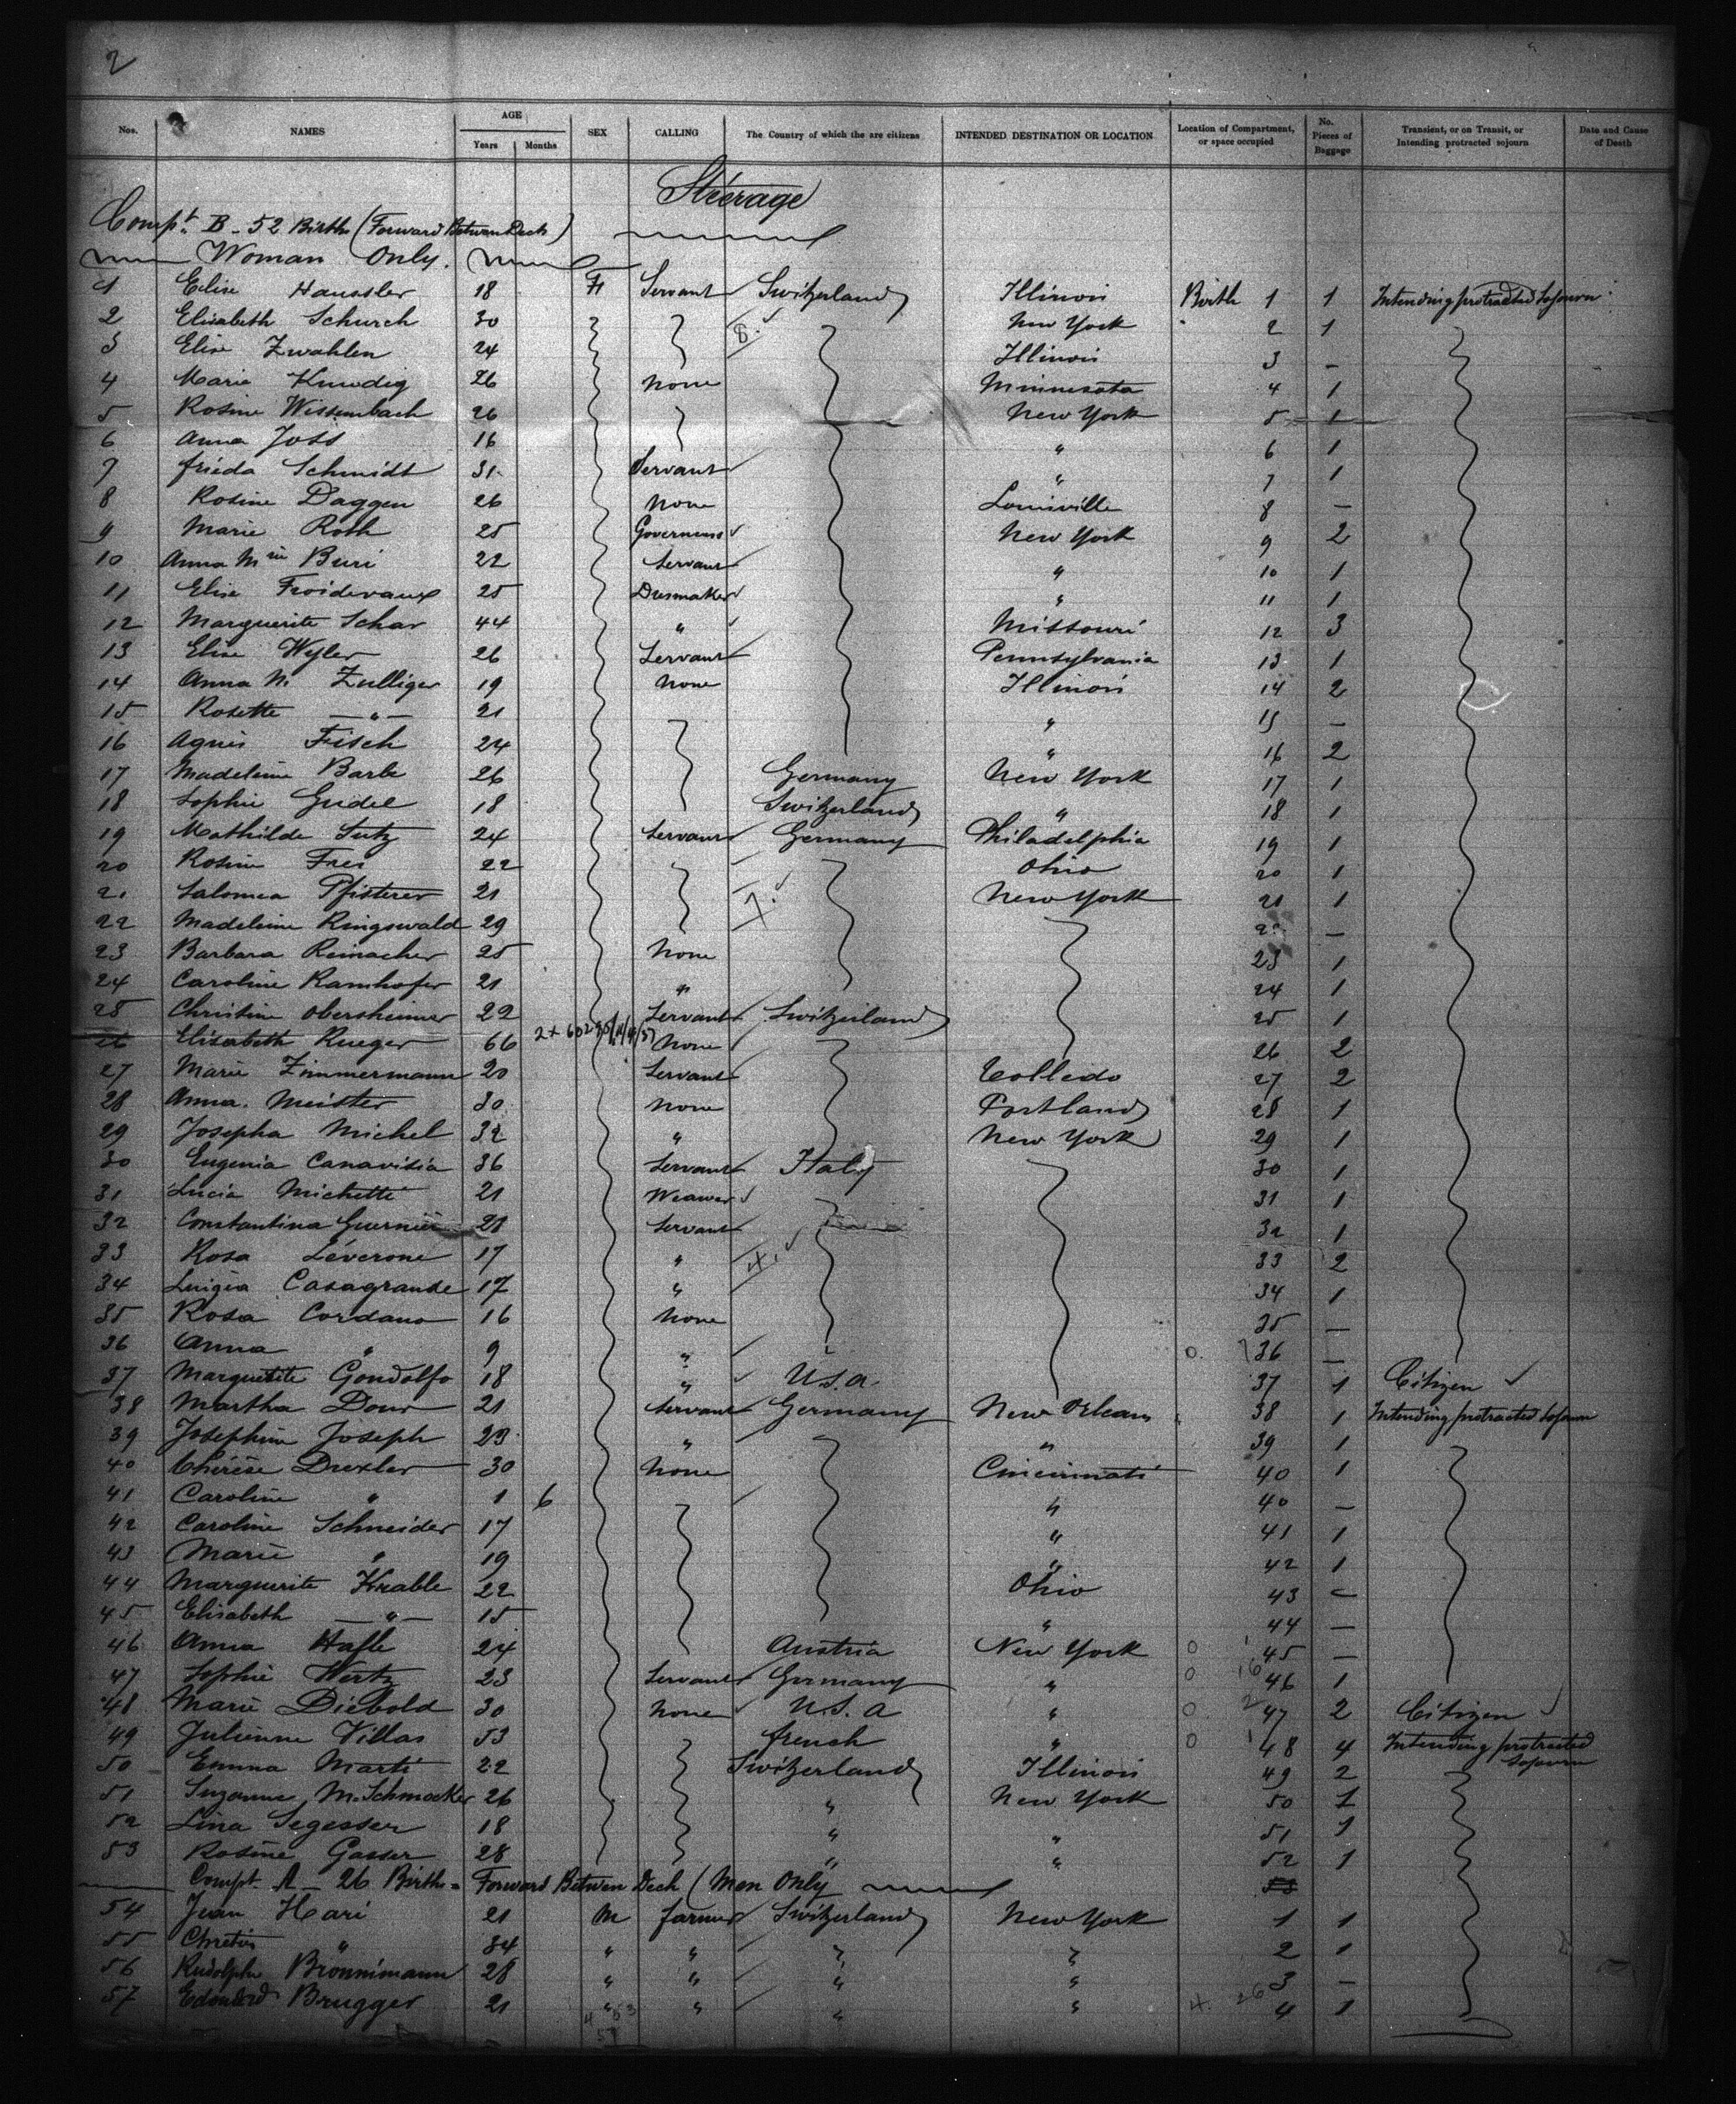 2
Nos. NAMES AGE Years Months SEX CALLING The Country of which the are citizens INTENDED DESTINATION OR LOCATION Location of Compartment, or space occupied No. Pieces of Baggage Transient, or on Transit, or Intending protracted sojourn Date and Cause of Death
Steerage
Compt. B - 52 Births (Forward Between Deck)
Woman Only.
1 Elise Haussler 18 F Servant Switzerland Illinois Birth 1 1 Intending protracted Sojourn
2 Elisabeth Schurch 30 8. New York 2 1
3 Elise Zwahlen 24 Illinois 3 -
4 Marie Kundig 26 None Minnesota 4 1
5 Rosine Wissembach 26 New York 5 1
6 Anna Joss 16 " 6 1
7 frieda Schmidt 31 Servant " 7 1
8 Rosine Daggen 26 None Louisville 8 -
9 Marie Roth 25 Governess New York 9 2
10 Anna Mrie Buri 22 Servant " 10 1
11 Elise Froidevaux 25 Dresmaker " 11 1
12 Marguerite Schar 44 " Missouri 12 3
13 Elise Wyler 26 Servant Pennsylvania 13 1
14 Anna M. Zulliger 19 None Illinois 14 2
15 Rosette -"- 21 " 15 -
16 Agnes Fisch 24 " 16 2
17 Madeleine Barb 26 Germany New York 17 1
18 Sophie Gridel 18 Switzerland " 18 1
19 Mathilde Lutz 24 Servant Germany Philadelphia 19 1
20 Rosine Frei 22 Ohio 20 1
21 Salomea Pfisterer 21 7. New York 21 1
22 Madeleine Ringswald 29 22 -
23 Barbara Reinacher 25 None 23 1
24 Caroline Ramhofer 21 " 24 1
25 Christine Obersheimer 22 Servant Switzerland 25 1
26 Elisabeth Rueger 66 None 26 2
27 Marie Zimmermann 20 Servant Tolledo 27 2
28 Anna. Meister 30 None Portland 28 1
29 Josepha Michel 32 " New York 29 1
30 Eugenia Canavisia 36 Servant Italy 30 1
31 Lucia Michetti 21 Weawer 31 1
32 Constantina Guernieri 21 Servant 32 1
33 Rosa Léverone 17 " 4. 33 2
34 Luigia Casagrande 17 " 34 1
35 Rosa Cordano 16 None 35 -
36 Anna " 9 " 0 36 -
37 Marguerite Gondolfo 18 " U.S.A. 37 1 Citizen
38 Martha Dour 21 Servant Germany New Orleans 38 1 Intending protracted Sojourn
39 Josephine Joseph 23 " " 39 1
40 Thérèse Drexler 30 None Cincinnati 40 1
41 Caroline " 1 6 " 40 -
42 Caroline Schneider 17 " 41 1
43 Marie " 19 " 42 1
44 Marguerite Knable 22 Ohio 43 -
45 Elisabeth -"- 15 " 44 -
46 Anna Hafle 24 Austria New York 0 45 -
47 Sophie Wertz 23 Servant Germany " 0 16 46 1
48 Marie Diebold 30 None U.S.A " 0 2 47 2 Citizen
49 Julienne Villas 53 french " 0 1 48 4 Intending protracted Sojourn
50 Emma Marti 22 Switzerland Illinois 49 2
51 Suzanne M. Schmocker 26 " New York 50 1
52 Lina Segesser 18 " " 51 1
53 Rosine Gasser 28 " " 52 1
Compt. A - 26 Births = Forward Between Deck (Men Only 53
54 Jean Hari 21 M farmer Switzerland New York 1 1
55 Chretien " 34 " " " " 2 1
56 Rudolphe Bronnimann 28 " " " " 3 -
57 Edouard Brugger 21 " " " " 4. 26 4 1
4 53
57